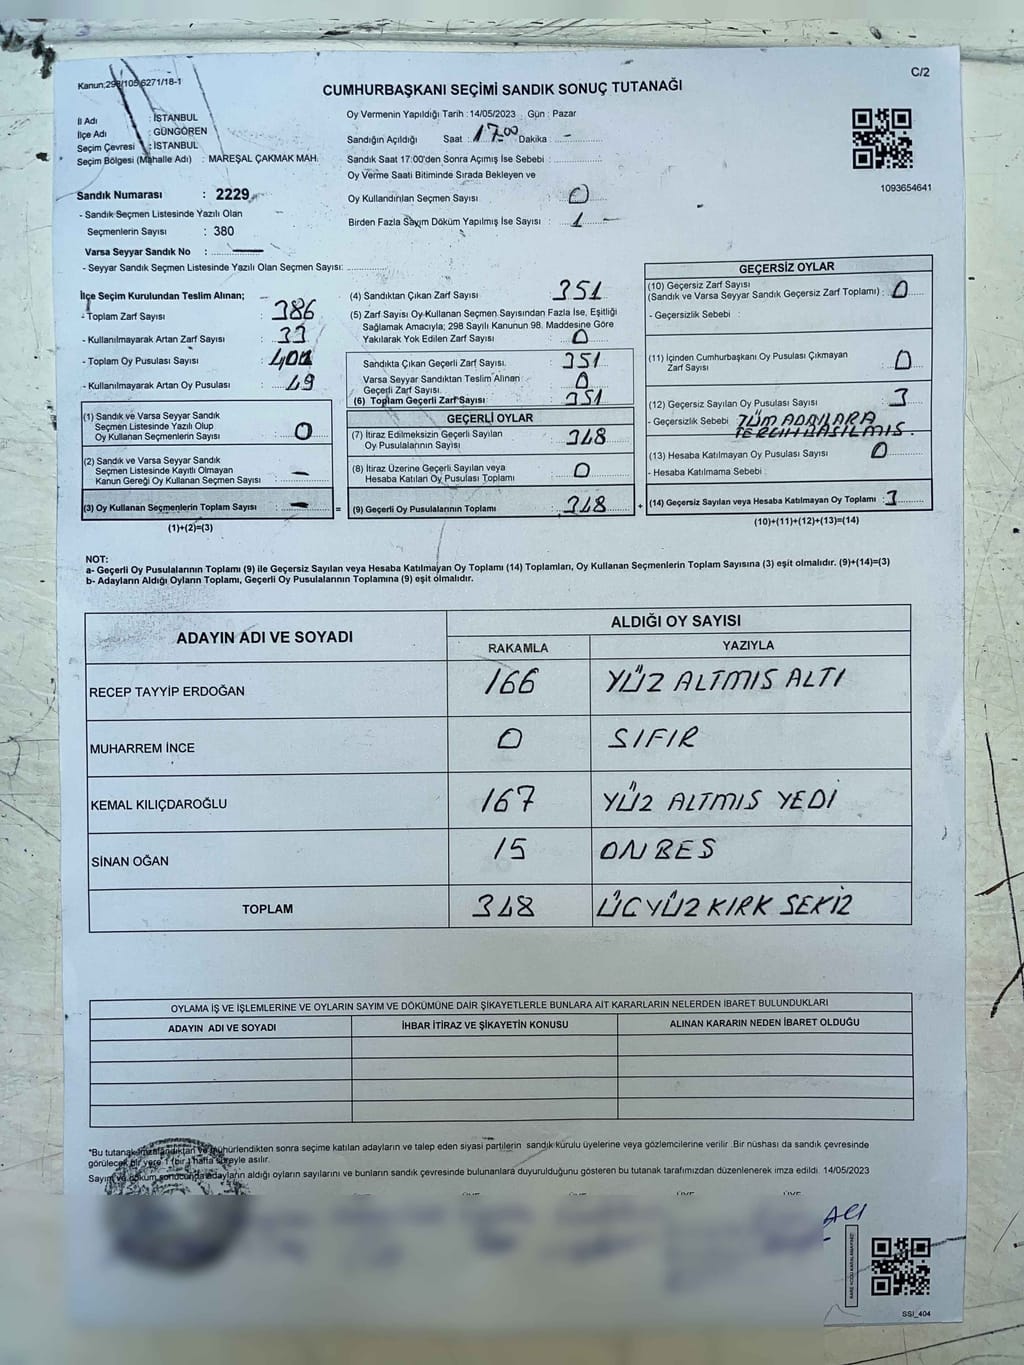 Kanun;298/105,6271/18-1
C/2
CUMHURBAŞKANI SEÇİMİ SANDIK SONUÇ TUTANAĞI
İl Adı : İSTANBUL
İlçe Adı : GÜNGÖREN
Seçim Çevresi : İSTANBUL
Seçim Bölgesi (Mahalle Adı) : MAREŞAL ÇAKMAK MAH.
Sandık Numarası : 2229
- Sandık Seçmen Listesinde Yazılı Olan
Seçmenlerin Sayısı : 380
Varsa Seyyar Sandık No :
- Seyyar Sandık Seçmen Listesinde Yazılı Olan Seçmen Sayısı:
Oy Vermenin Yapıldığı Tarih : 14/05/2023 Gün : Pazar
Sandığın Açıldığı Saat : 17.00 Dakika : -
Sandık Saat 17:00'den Sonra Açımış İse Sebebi :
Oy Verme Saati Bitiminde Sırada Bekleyen ve
Oy Kullandırılan Seçmen Sayısı : 0
Birden Fazla Sayım Döküm Yapılmış İse Sayısı : 1
1093654641
İlçe Seçim Kurulundan Teslim Alınan;
- Toplam Zarf Sayısı : 386
- Kullanılmayarak Artan Zarf Sayısı : 33
- Toplam Oy Pusulası Sayısı :
- Kullanılmayarak Artan Oy Pusulası : 49
(1) Sandık ve Varsa Seyyar Sandık
Seçmen Listesinde Yazılı Olup
Oy Kullanan Seçmenlerin Sayısı : 0
(2) Sandık ve Varsa Seyyar Sandık
Seçmen Listesinde Kayıtlı Olmayan
Kanun Gereği Oy Kullanan Seçmen Sayısı : -
(3) Oy Kullanan Seçmenlerin Toplam Sayısı : -
(1)+(2)=(3)
(4) Sandıktan Çıkan Zarf Sayısı : 351
(5) Zarf Sayısı Oy Kullanan Seçmen Sayısından Fazla İse, Eşitliği
Sağlamak Amacıyla; 298 Sayılı Kanunun 98. Maddesine Göre
Yakılarak Yok Edilen Zarf Sayısı : 0
Sandıkta Çıkan Geçerli Zarf Sayısı. : 351
Varsa Seyyar Sandıktan Teslim Alınan
Geçerli Zarf Sayısı. : 0
(6) Toplam Geçerli Zarf Sayısı : 351
GEÇERLİ OYLAR
(7) İtiraz Edilmeksizin Geçerli Sayılan
Oy Pusulalarının Sayısı : 348
(8) İtiraz Üzerine Geçerli Sayılan veya
Hesaba Katılan Oy Pusulası Toplamı : 0
= (9) Geçerli Oy Pusulalarının Toplamı : 348 +
GEÇERSİZ OYLAR
(10) Geçersiz Zarf Sayısı
(Sandık ve Varsa Seyyar Sandık Geçersiz Zarf Toplamı) : 0
- Geçersizlik Sebebi :
(11) İçinden Cumhurbaşkanı Oy Pusulası Çıkmayan
Zarf Sayısı : 0
(12) Geçersiz Sayılan Oy Pusulası Sayısı : 3
- Geçersizlik Sebebi : TÜM ADAYLARA
TERCİH BASILMIS.
(13) Hesaba Katılmayan Oy Pusulası Sayısı : 0
- Hesaba Katılmama Sebebi :
(14) Geçersiz Sayılan veya Hesaba Katılmayan Oy Toplamı : 3
(10)+(11)+(12)+(13)=(14)
NOT:
a- Geçerli Oy Pusulalarının Toplamı (9) ile Geçersiz Sayılan veya Hesaba Katılmayan Oy Toplamı (14) Toplamları, Oy Kullanan Seçmenlerin Toplam Sayısına (3) eşit olmalıdır. (9)+(14)=(3)
b- Adayların Aldığı Oyların Toplamı, Geçerli Oy Pusulalarının Toplamına (9) eşit olmalıdır.
ADAYIN ADI VE SOYADI
ALDIĞI OY SAYISI
RAKAMLA YAZIYLA
RECEP TAYYİP ERDOĞAN 166 YÜZ ALTMIS ALTI
MUHARREM İNCE 0 SIFIR
KEMAL KILIÇDAROĞLU 167 YÜZ ALTMIS YEDİ
SİNAN OĞAN 15 ONBES
TOPLAM 348 ÜCYÜZ KIRK SEKİZ
OYLAMA İŞ VE İŞLEMLERİNE VE OYLARIN SAYIM VE DÖKÜMÜNE DAİR ŞİKAYETLERLE BUNLARA AİT KARARLARIN NELERDEN İBARET BULUNDUKLARI
ADAYIN ADI VE SOYADI İHBAR İTİRAZ VE ŞİKAYETİN KONUSU ALINAN KARARIN NEDEN İBARET OLDUĞU
*Bu tutanak imzalandıktan ve mühürlendikten sonra seçime katılan adayların ve talep eden siyasi partilerin sandık kurulu üyelerine veya gözlemcilerine verilir .Bir nüshası da sandık çevresinde
görülecek bir yere 1 (bir) hafta süreyle asılır.
Sayım ve döküm sonucunda adayların aldığı oyların sayılarını ve bunların sandık çevresinde bulunanlara duyurulduğunu gösteren bu tutanak tarafımızdan düzenlenerek imza edildi. 14/05/2023
KARE KODU KARALAMAYINIZ!
SSI_404